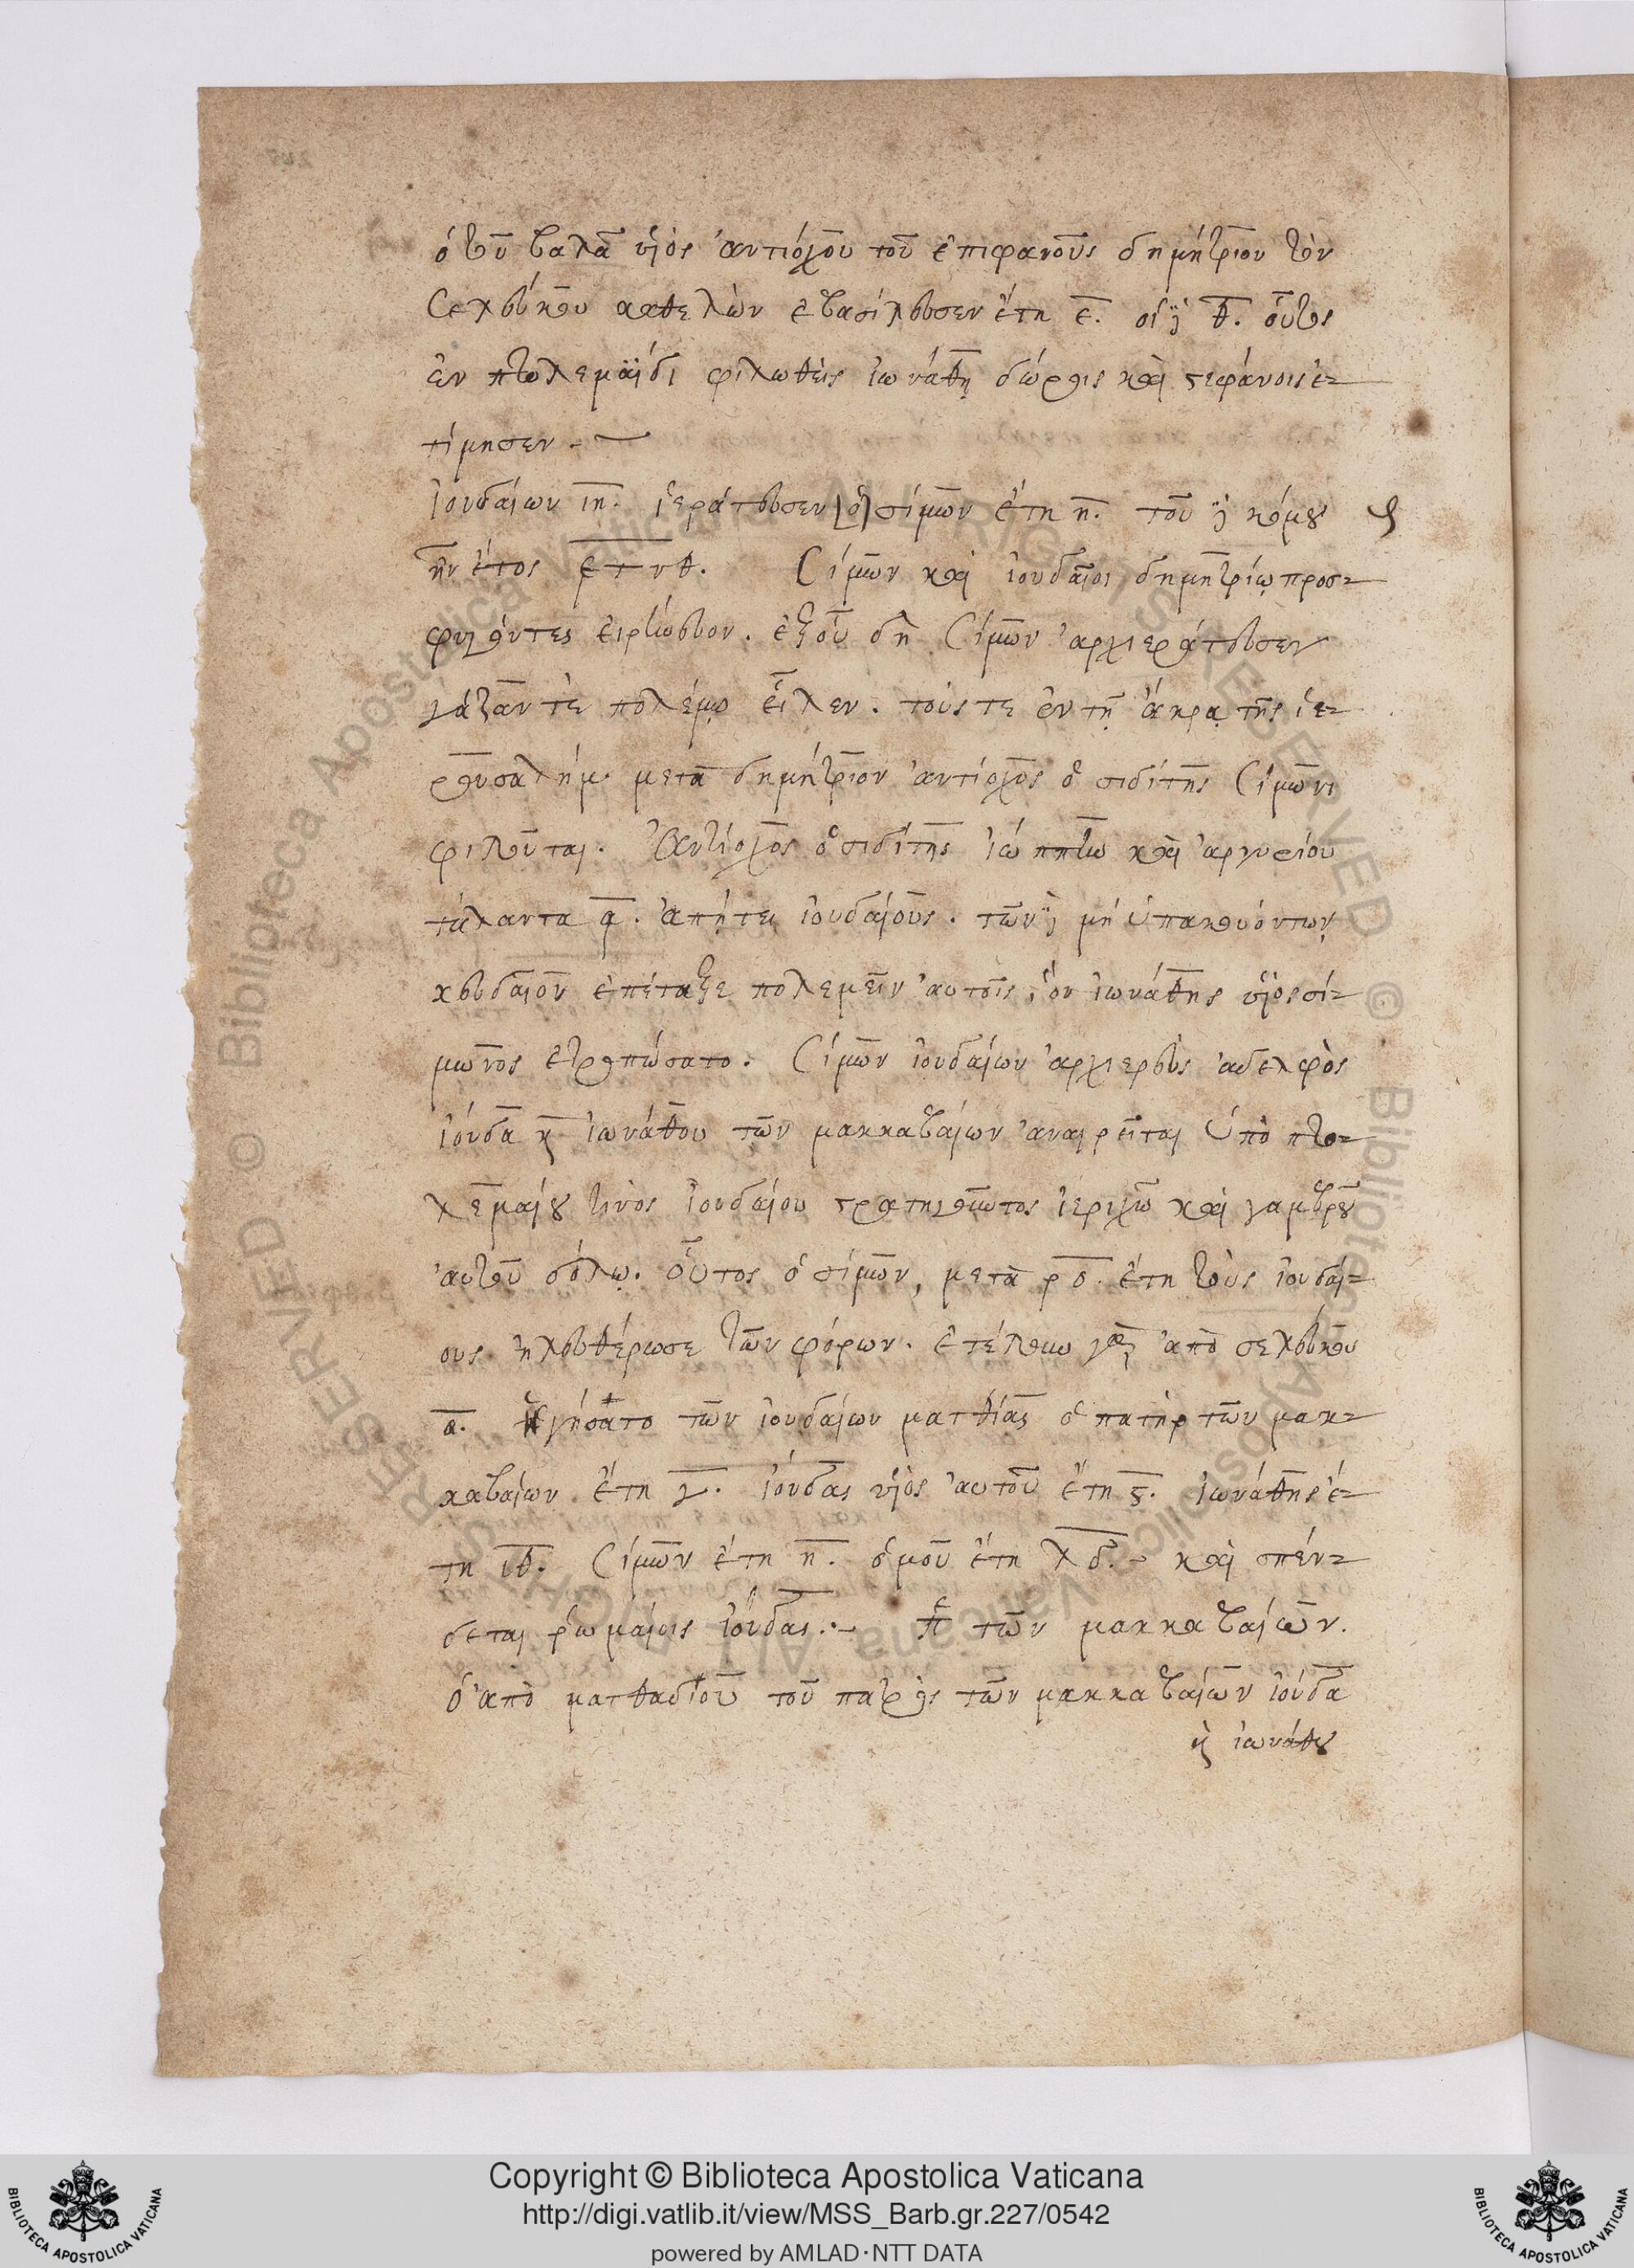 ὁ τοῦ βαλᾶ υἱὸς ἀντιόχου τοῦ ἐπιφανοῦς δημήτριον τὸν
σελεύκου καθελὼν ἐβασίλευσεν ἔτη ε. οἱ δὲ θ. οὗτος
ἐν πτολεμαΐδι φιλωθεὶς ἰωνάθῃ δώροις καὶ στεφάνοις ἐ-
τίμησεν.
ἰουδαίων ιη. ἱεράτευσεν ὁ σίμων ἔτη η. τοῦ δὲ κόσμου
ἦν ἔτος ετνθ. Σίμων καὶ ἰουδαῖοι δημητρίῳ προσ-
φυγόντες εἰρήνευον. ἐξ οὗ δὴ Σίμων ἀρχιεράτευσεν
γάζαν τὲ πολέμῳ εἷλεν. τούς τε ἐν τῇ ἄκρᾳ τῆς ἱε-
ρουσαλήμ. μετὰ δημήτριον ἀντίοχος ὁ σιδίτης Σίμωνι
φιλοῦται. Ἀντίοχος ὁ σιδίτης ἰόππην καὶ ἀργυρίου
τάλαντα ἀπῄτει ἰουδαίους. τῶν δὲ μὴ ὑπακουόντων
κευδαῖον ἐπέταξε πολεμεῖν αὐτοῖς, ὃν ἰωνάθης υἱὸς σί-
μωνος ἐτροπώσατο. Σίμων ἰουδαίων ἀρχιερεὺς ἀδελφὸς
ἰούδα καὶ ἰωνάθου τῶν μακκαβαίων ἀναιρεῖται ὑπὸ πτο-
λεμαίου τινὸς ἰουδαίου στρατηγοῦντος ἱεριχὼ καὶ γαμβροῦ
αὐτοῦ δόλῳ. οὗτος ὁ σίμων, μετὰ ρο. ἔτη τοὺς ἰουδαί-
ους ἠλευθέρωσε τῶν φόρων. ἐτέλουν γὰρ ἀπὸ σελεύκου
α. Ἡγήσατο τῶν ἰουδαίων ματθίας ὁ πατὴρ τῶν μακ-
καβαίων ἔτη γ. ἰούδας υἱὸς αὐτοῦ ἔτη ς. ἰωνάθης ἔ-
τη ιθ. Σίμων ἔτη η. ὁμοῦ ἔτη λδ. καὶ σπέν-
δεται ῥωμαίοις ἰούδας. τῶν μακκαβαίων.
ὁ ἀπὸ ματθαδίου τοῦ πατρὸς τῶν μακκαβαίων ἰούδα
καὶ ἰωνάθου
© Biblioteca Apostolica Vaticana ALL RIGHTS RESERVED
Copyright © Biblioteca Apostolica Vaticana
http://digi.vatlib.it/view/MSS_Barb.gr.227/0542
powered by AMLAD·NTT DATA
BIBLIOTECA APOSTOLICA VATICANA
BIBLIOTECA APOSTOLICA VATICANA